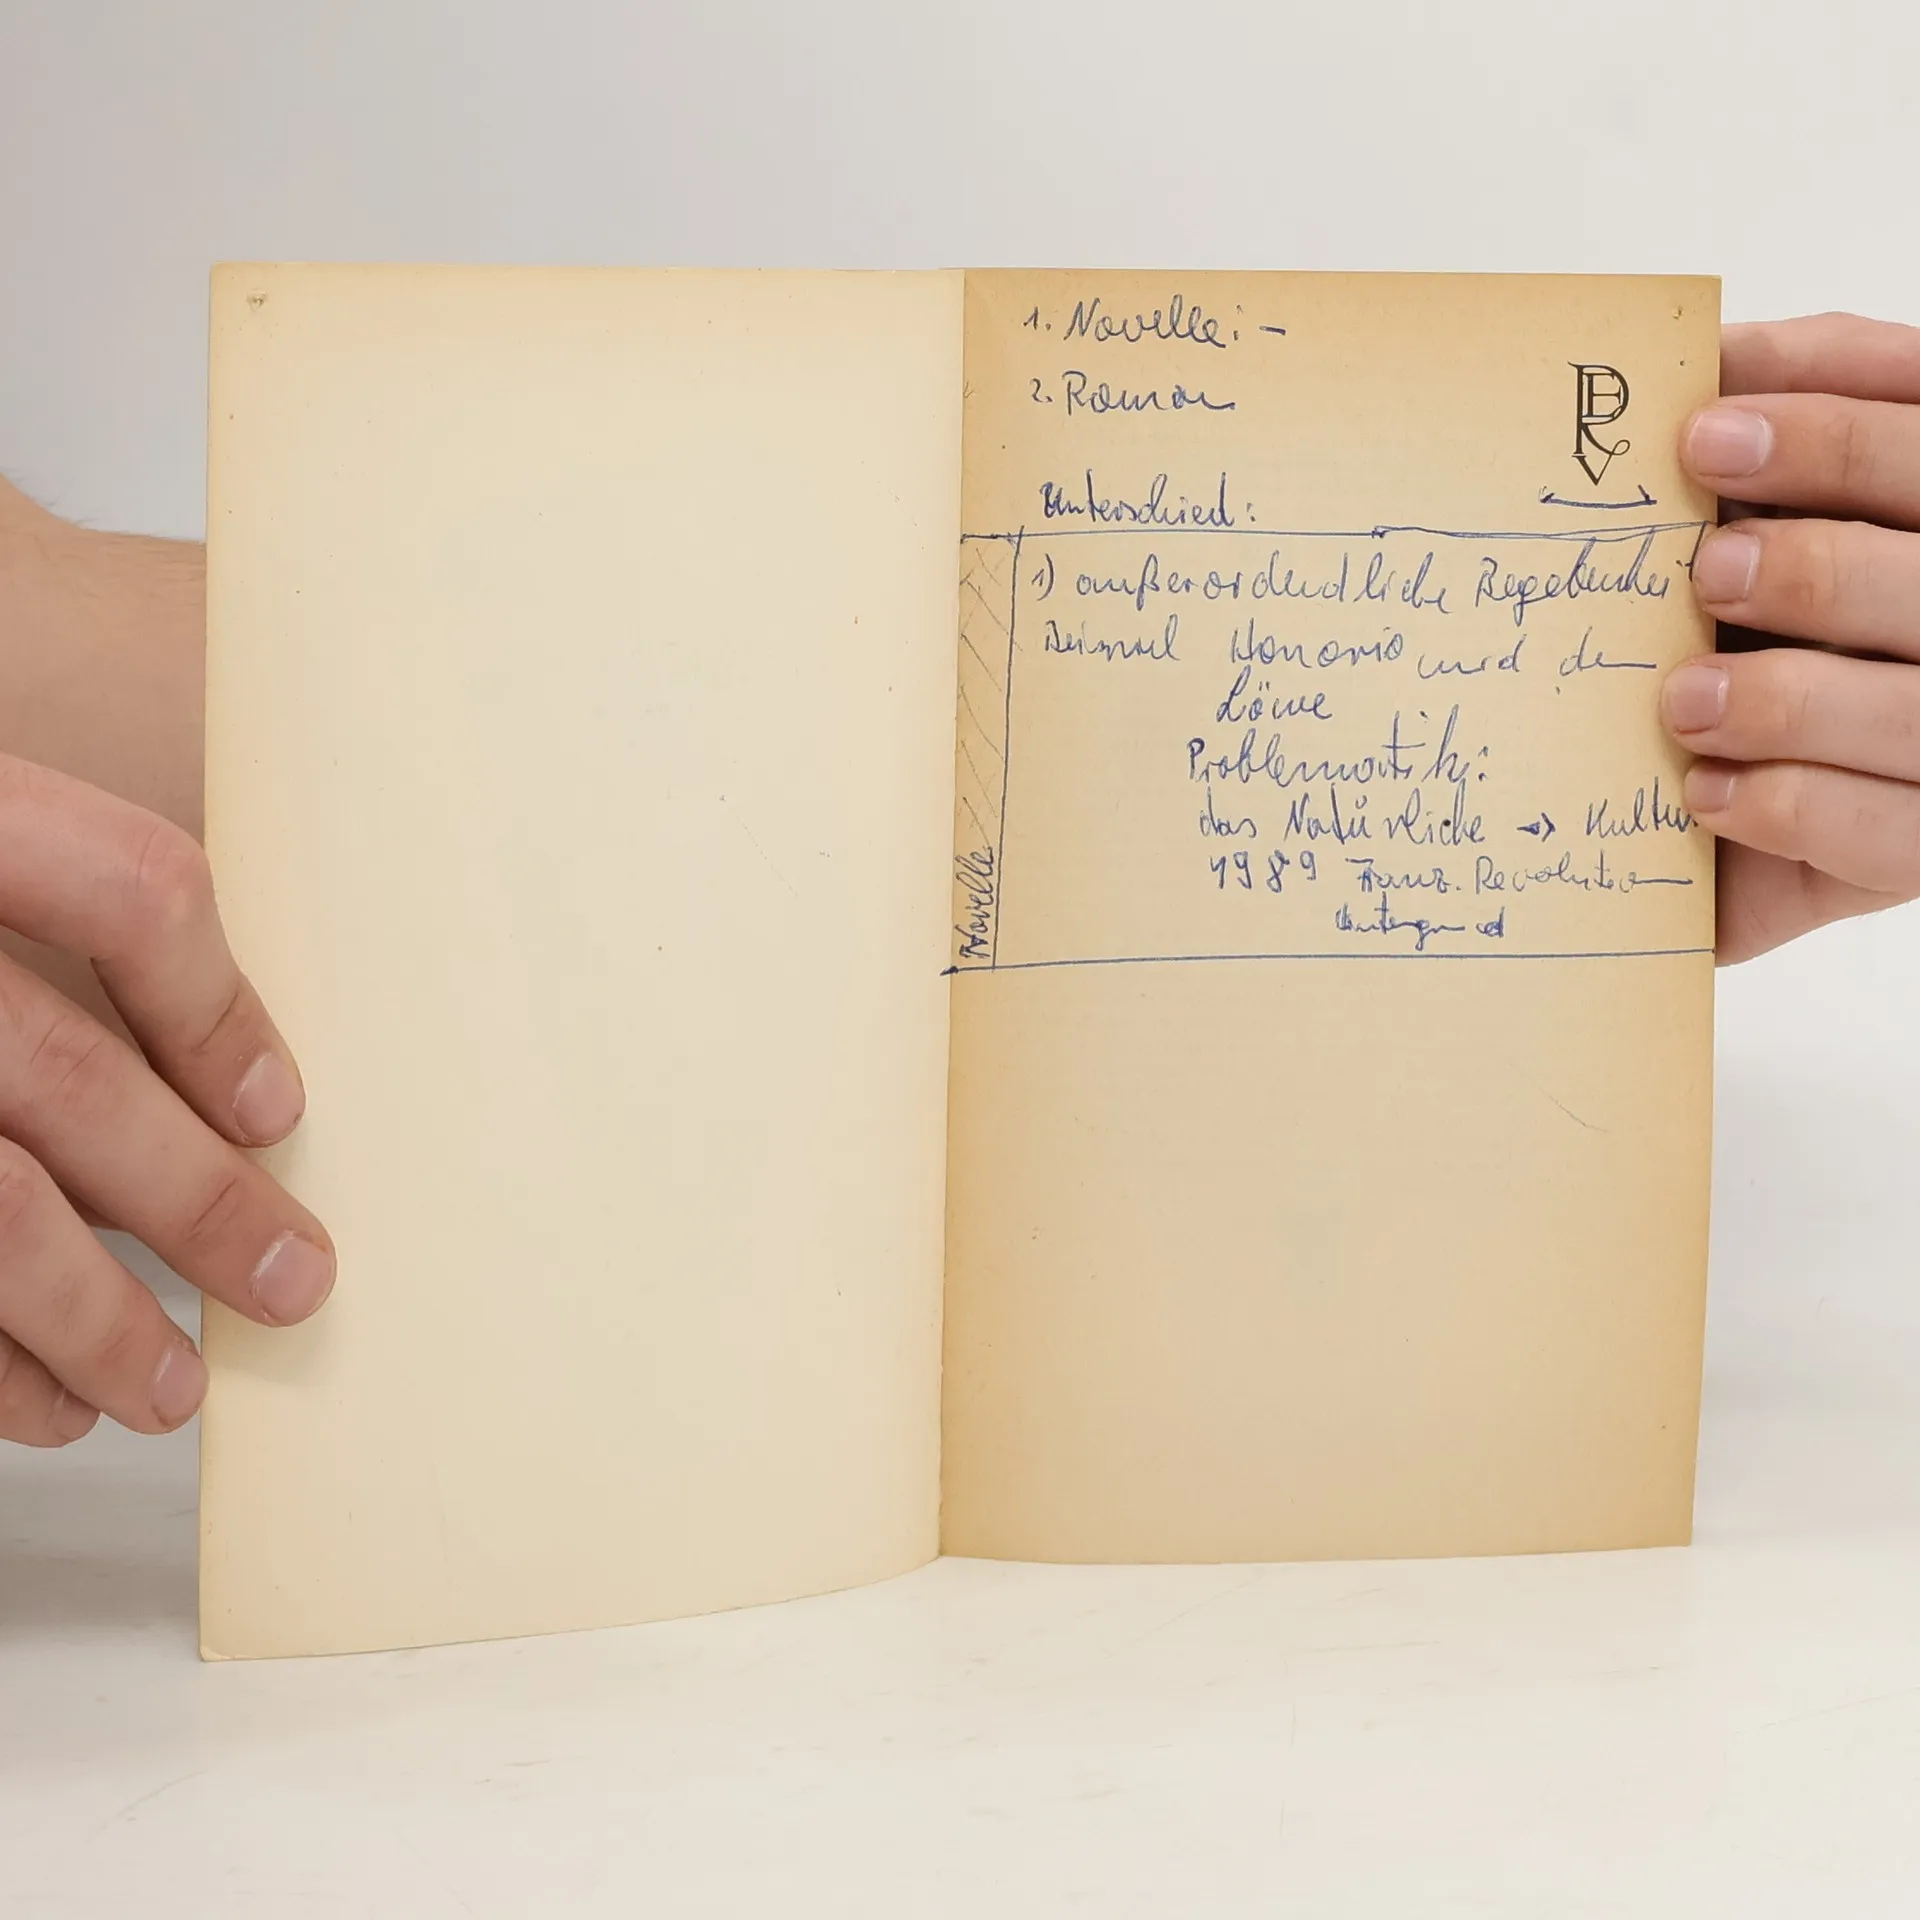 1. Novelle: -
2. Roman
Unterschied:
1) außerordendliche Begebenheit
Honorio und der
Löwe
Problematik:
das Natürliche → Kultur
1989 Franz. Revolution
Novelle